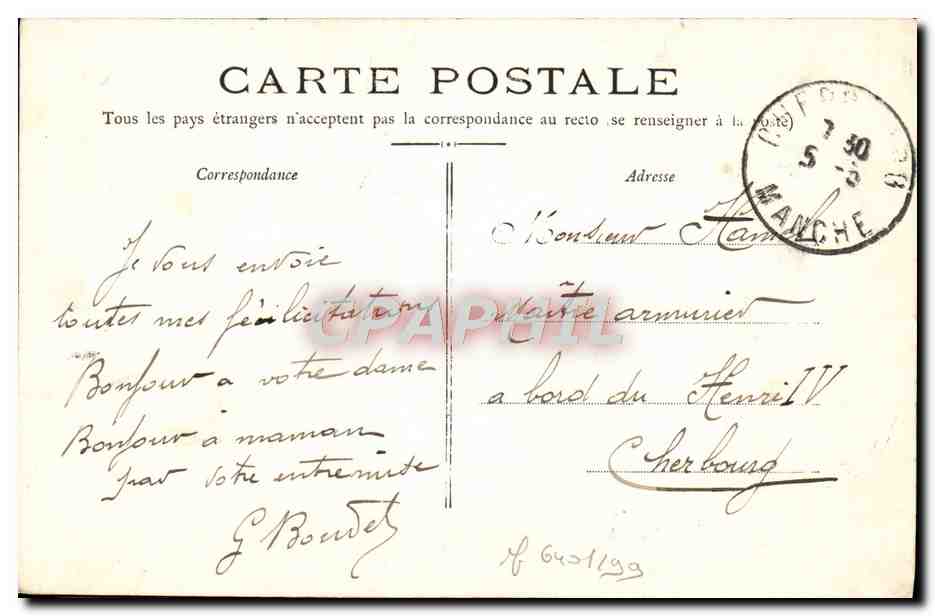 CARTE POSTALE
Tous les pays étrangers n'acceptent pas la correspondance au recto (se renseigner à la poste)
Correspondance
Je vous envoie
toutes mes félicitations
Bonjour a votre dame
Bonjour à maman
par votre entremise
G Boudet
Adresse
7 30
5
MANCHE
Monsieur Hamel
Maître armurier
a bord du Henri IV
Cherbourg
6401299
CPAPHIL